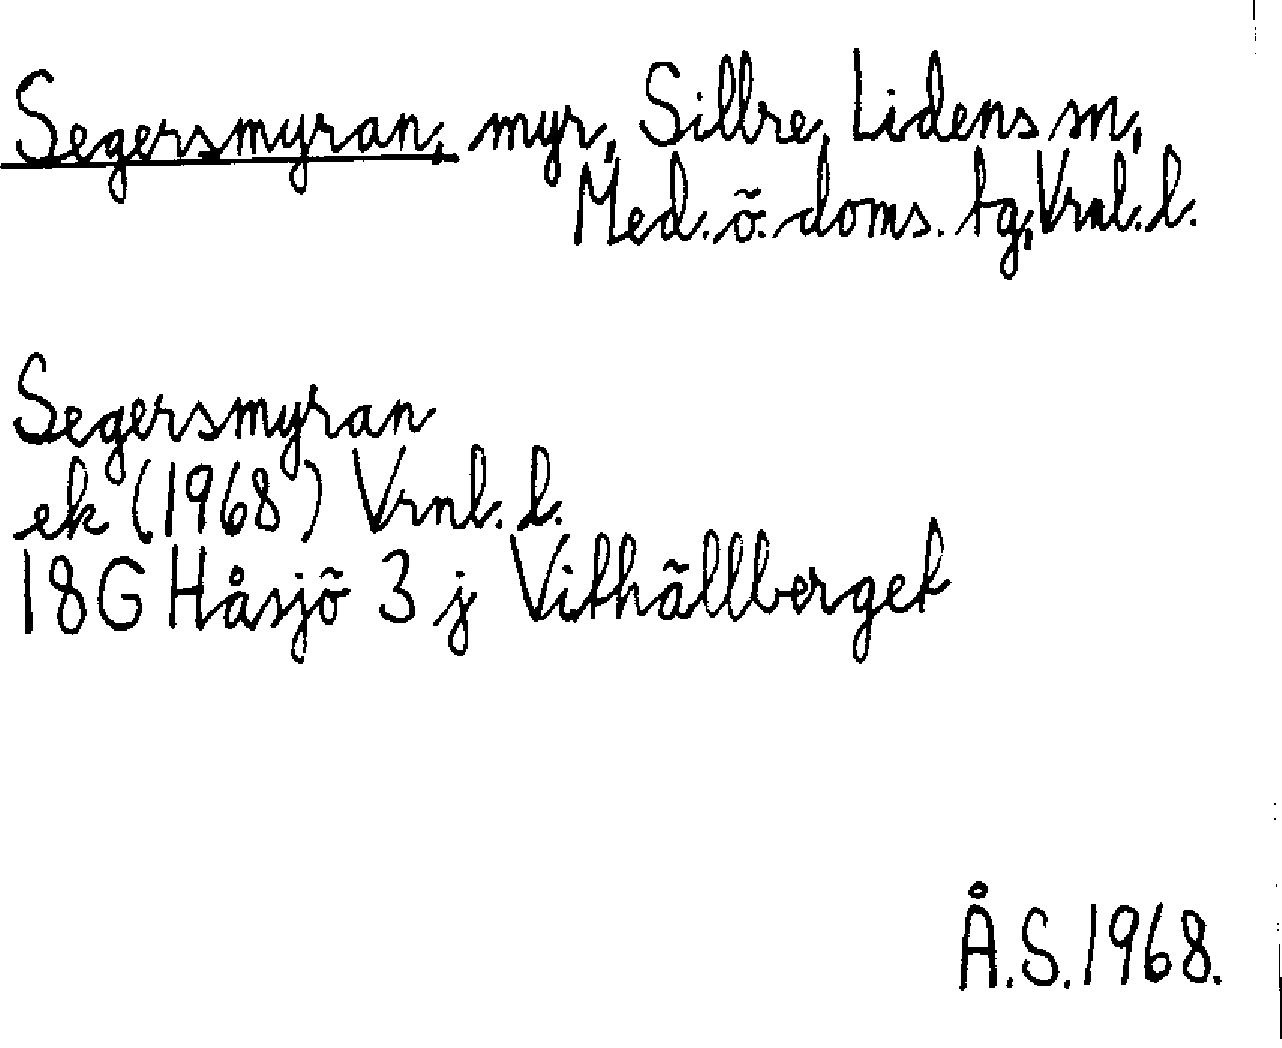 Segersmyran, myr, Sillre, Lidens sn,
Med. ö. doms. tg, Vrnl. l.
Segersmyran
ek (1968) Vrnl. l.
18G Håsjö 3 j Vithällberget
Å.S. 1968.